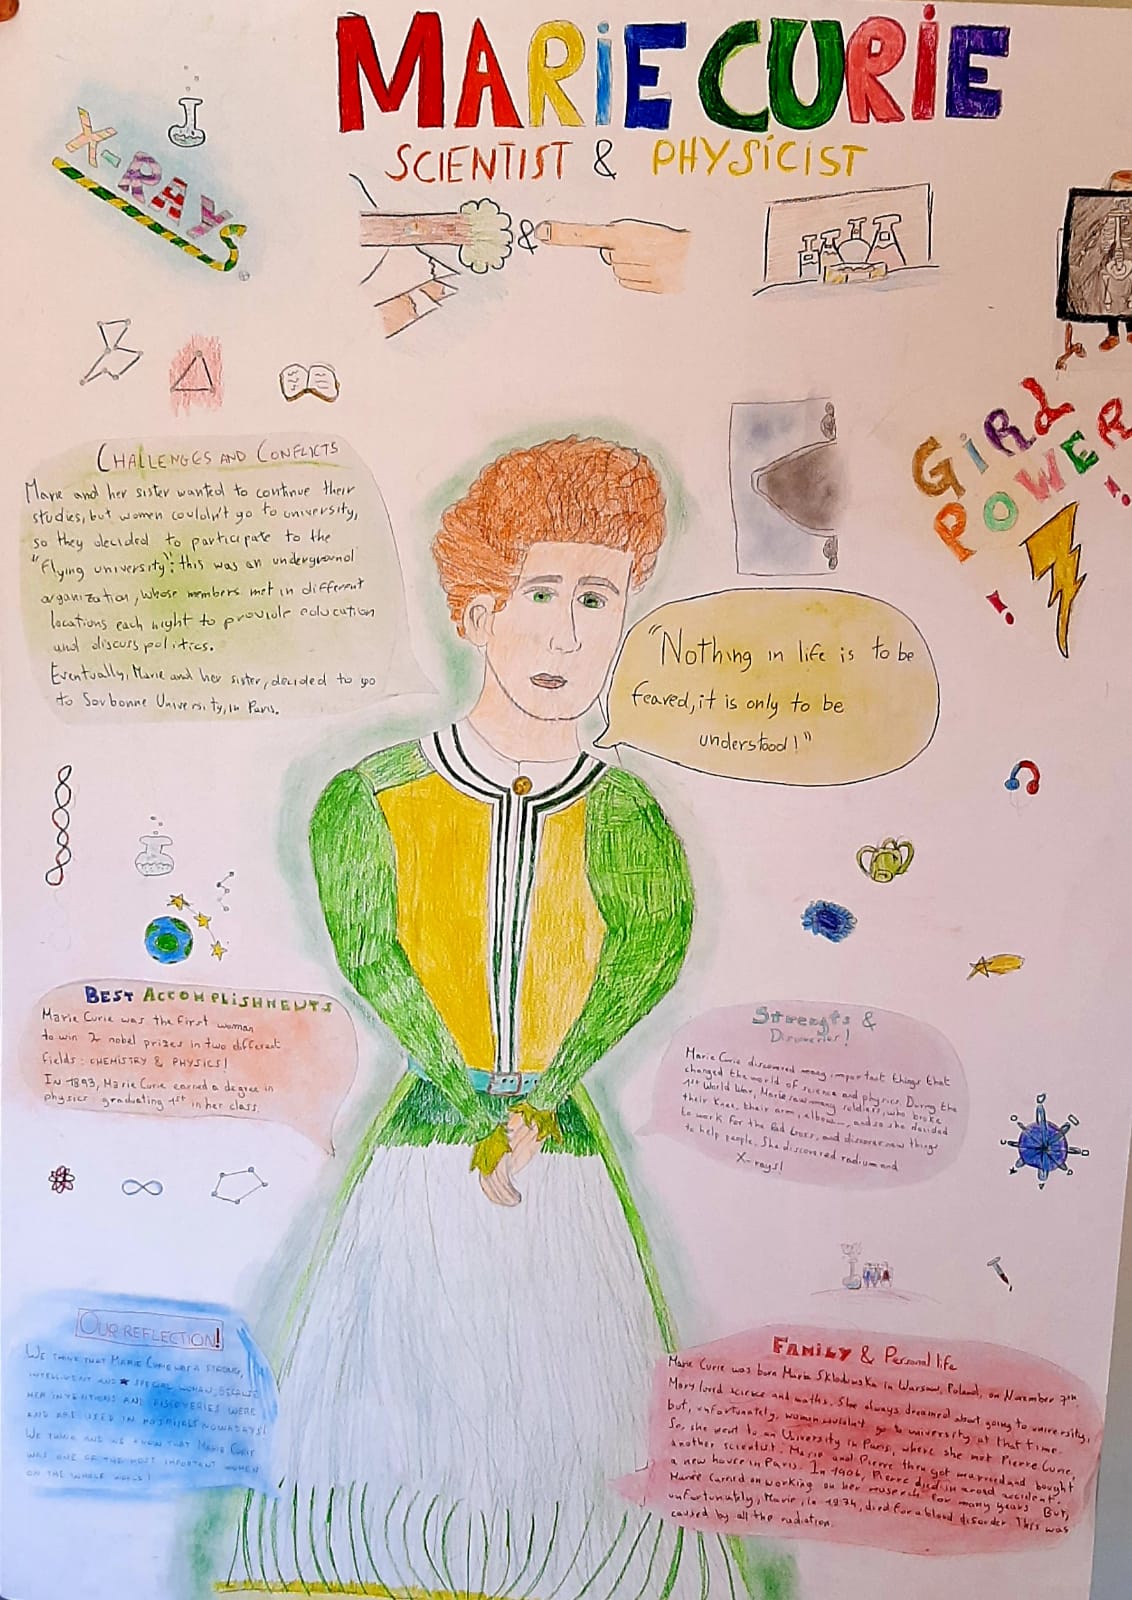 MARIE CURIE
SCIENTIST & PHYSICIST
X-RAYS
&
GIRL
POWER!
!
CHALLENGES AND CONFLICTS
Marie and her sister wanted to continue their
studies, but women couldn't go to university,
so they decided to participate to the
"Flying university": this was an underground
organization, whose members met in different
locations each night to provide education
and discuss politics.
Eventually, Marie and her sister, decided to go
to Sorbonne University, in Paris.
"Nothing in life is to be
feared, it is only to be
understood!"
BEST ACCOMPLISHMENTS
Marie Curie was the first woman
to win 2 nobel prizes in two different
fields: CHEMISTRY & PHYSICS!
In 1893, Marie Curie earned a degree in
physics, graduating 1st in her class.
Strengts &
Discoveries!
Marie Curie discovered many important things that
changed the world of science and physics. During the
1st World War, Marie saw many soldiers, who broke
their knee, their arm, elbow..., and so she decided
to work for the Red Cross, and discover new things
to help people. She discovered radium and
X-rays!
OUR REFLECTION!
WE THINK THAT MARIE CURIE WAS A STRONG,
INTELLIGENT AND SPECIAL WOMAN, BECAUSE
HER INVENTIONS AND DISCOVERIES WERE
AND ARE USED IN HOSPITALS NOWADAYS!
WE THINK AND WE KNOW THAT MARIE CURIE
WAS ONE OF THE MOST IMPORTANT WOMEN
ON THE WHOLE WORLD!
FAMILY & Personal life
Marie Curie was born Maria Sklodowska in Warsaw, Poland, on November 7th.
Mary loved science and maths. She always dreamed about going to university,
but, unfortunately, women couldn't go to university at that time.
So, she went to an University in Paris, where she met Pierre Curie,
another scientist. Marie and Pierre they got married and bought
a new house in Paris. In 1906, Pierre died in a road accident.
Marie carried on working on her for many years. But,
unfortunately, Marie, in 1934, died for a blood disorder. This was
caused by all the radiation.